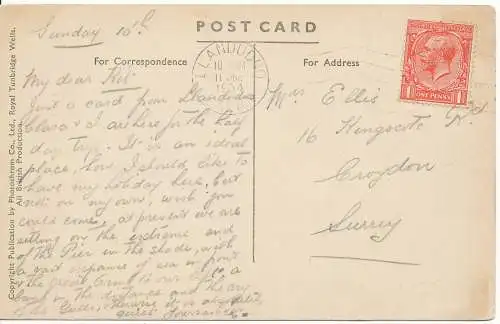 Sunday 10th
POST CARD
For Correspondence
For Address
LLANDUDNO
ONE PENNY
My dear Kit
Just a card from Llandudno
Clara & I are here for the
day trip. It is an ideal
place, how I should like to
have my holiday here, but
not on my own, wish you
could come, at present we are
sitting on the extreme end
of the Pier in the shade, with
a vast expanse of sea in front
the great Orme to our
in the distance and the cry
of the Gulls, otherwise it is absolutely
quiet
Mrs Ellis
16 Kingscote Rd
Croydon
Surrey
Copyright Publication by Photochrom Co., Ltd., Royal Tunbridge Wells.
All British Production.